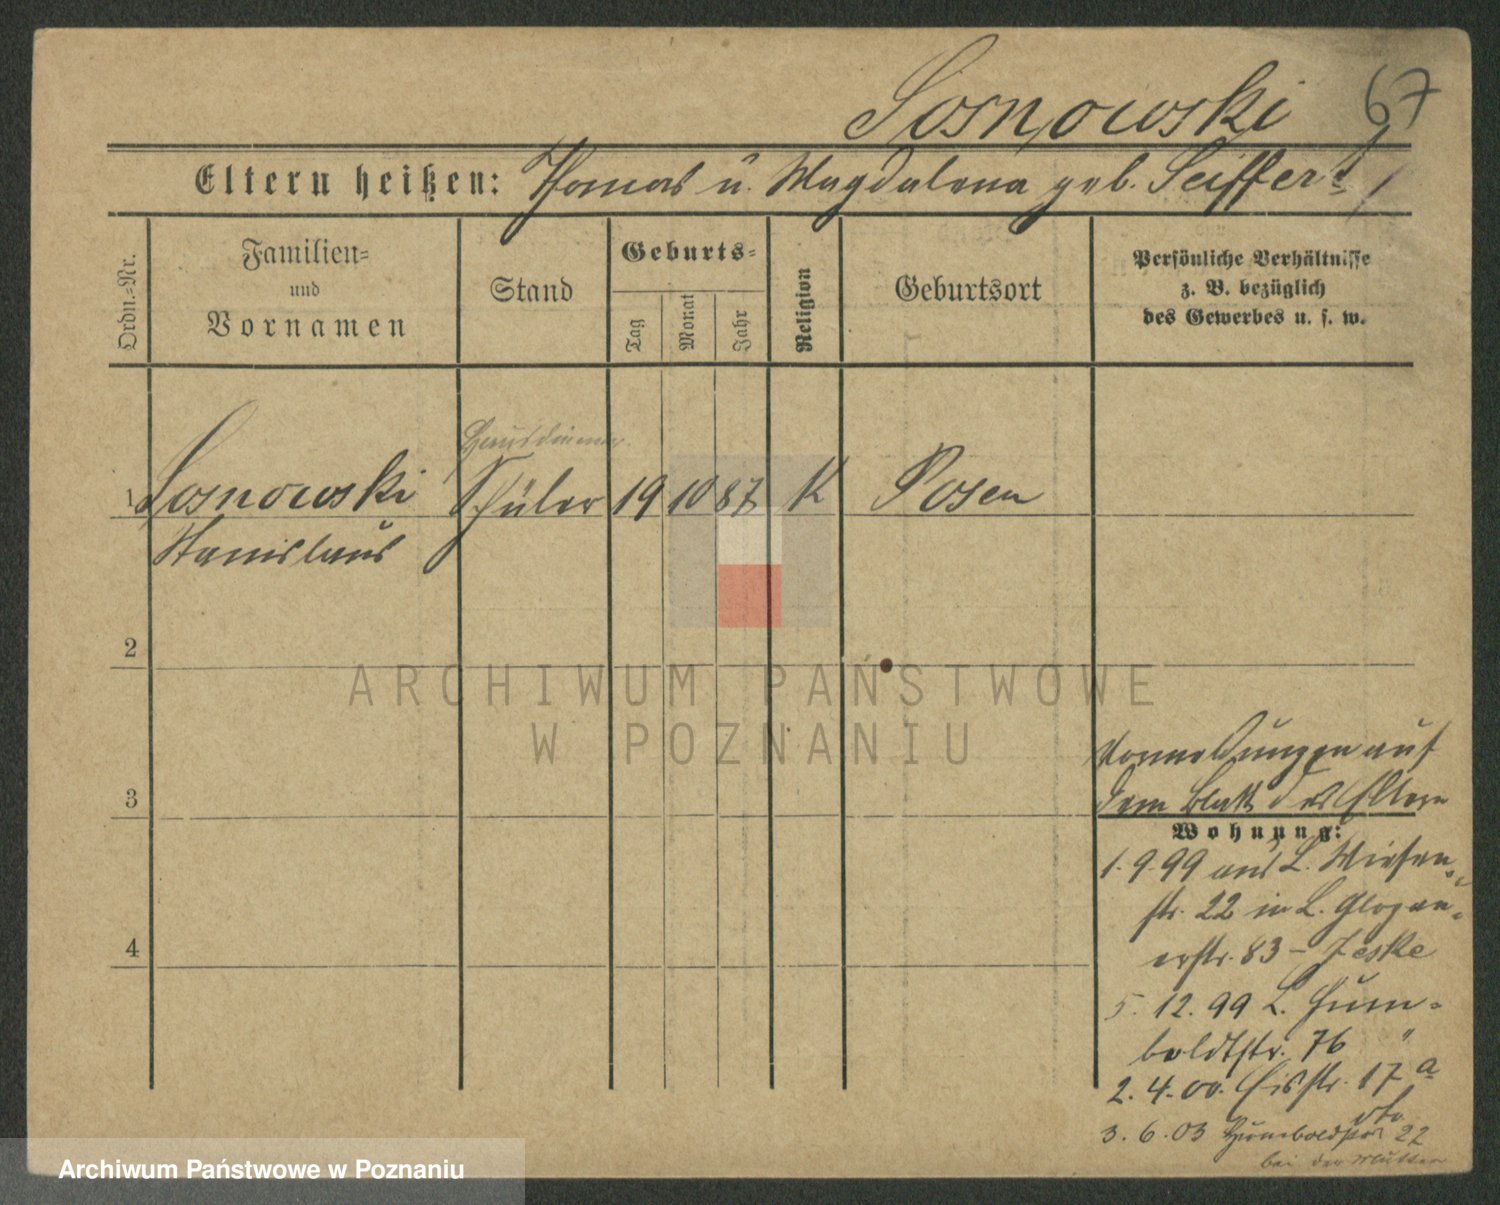 Sosnowski 67
Eltern heißen: Thomas u. Magdalena geb. Seiffert
Ordn.-Nr.
Familien- und Vornamen
Stand
Geburts-
Tag Monat Jahr
Religion
Geburtsort
Persönliche Verhältnisse
z. B. bezüglich
des Gewerbes u. s. w.
Hausdiener
1 Sosnowski Schüler 19 10 87 K Posen
Stanislaus
2
ARCHIWUM PAŃSTWOWE
W POZNANIU
3
Vormeldungen auf
dem Blatt der Eltern
Wohnung:
1. 9. 99 aus L. Wiesen-
str. 22 in L. Glogau-
erstr. 83 – Jeske
4
5. 12. 99 L. Hum-
boldtstr. 76 "
2. 4. 00. 17a
3. 6. 03 22
bei der Mutter
Archiwum Państwowe w Poznaniu